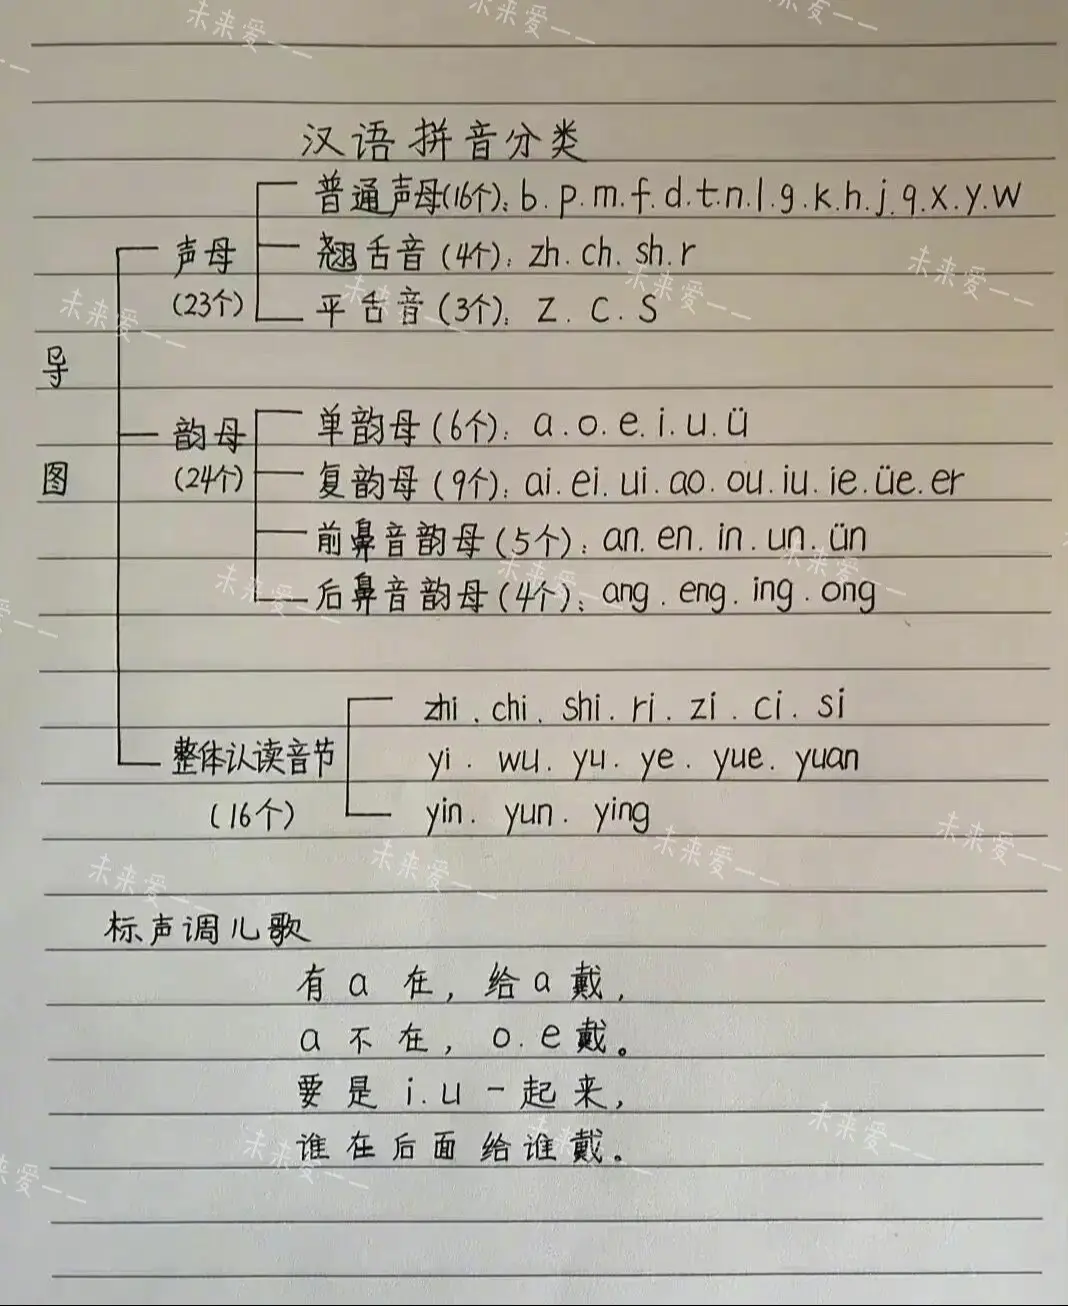 汉语拼音分类
普通声母(16个): b.p.m.f.d.t.n.l.g.k.h.j.q.x.y.w
声母
翘舌音(4个): zh.ch.sh.r
(23个)
平舌音(3个): z.c.s
导
单韵母(6个): a.o.e.i.u.ü
韵母
(24个)
图
复韵母(9个): ai.ei.ui.ao.ou.iu.ie.üe.er
前鼻音韵母(5个): an.en.in.un.ün
后鼻音韵母(4个): ang.eng.ing.ong
zhi.chi.shi.ri.zi.ci.si
整体认读音节
yi.wu.yu.ye.yue.yuan
(16个)
yin.yun.ying
标声调儿歌
有a在,给a戴,
a不在,o.e戴。
要是i.u一起来,
谁在后面给谁戴。
未来爱一一